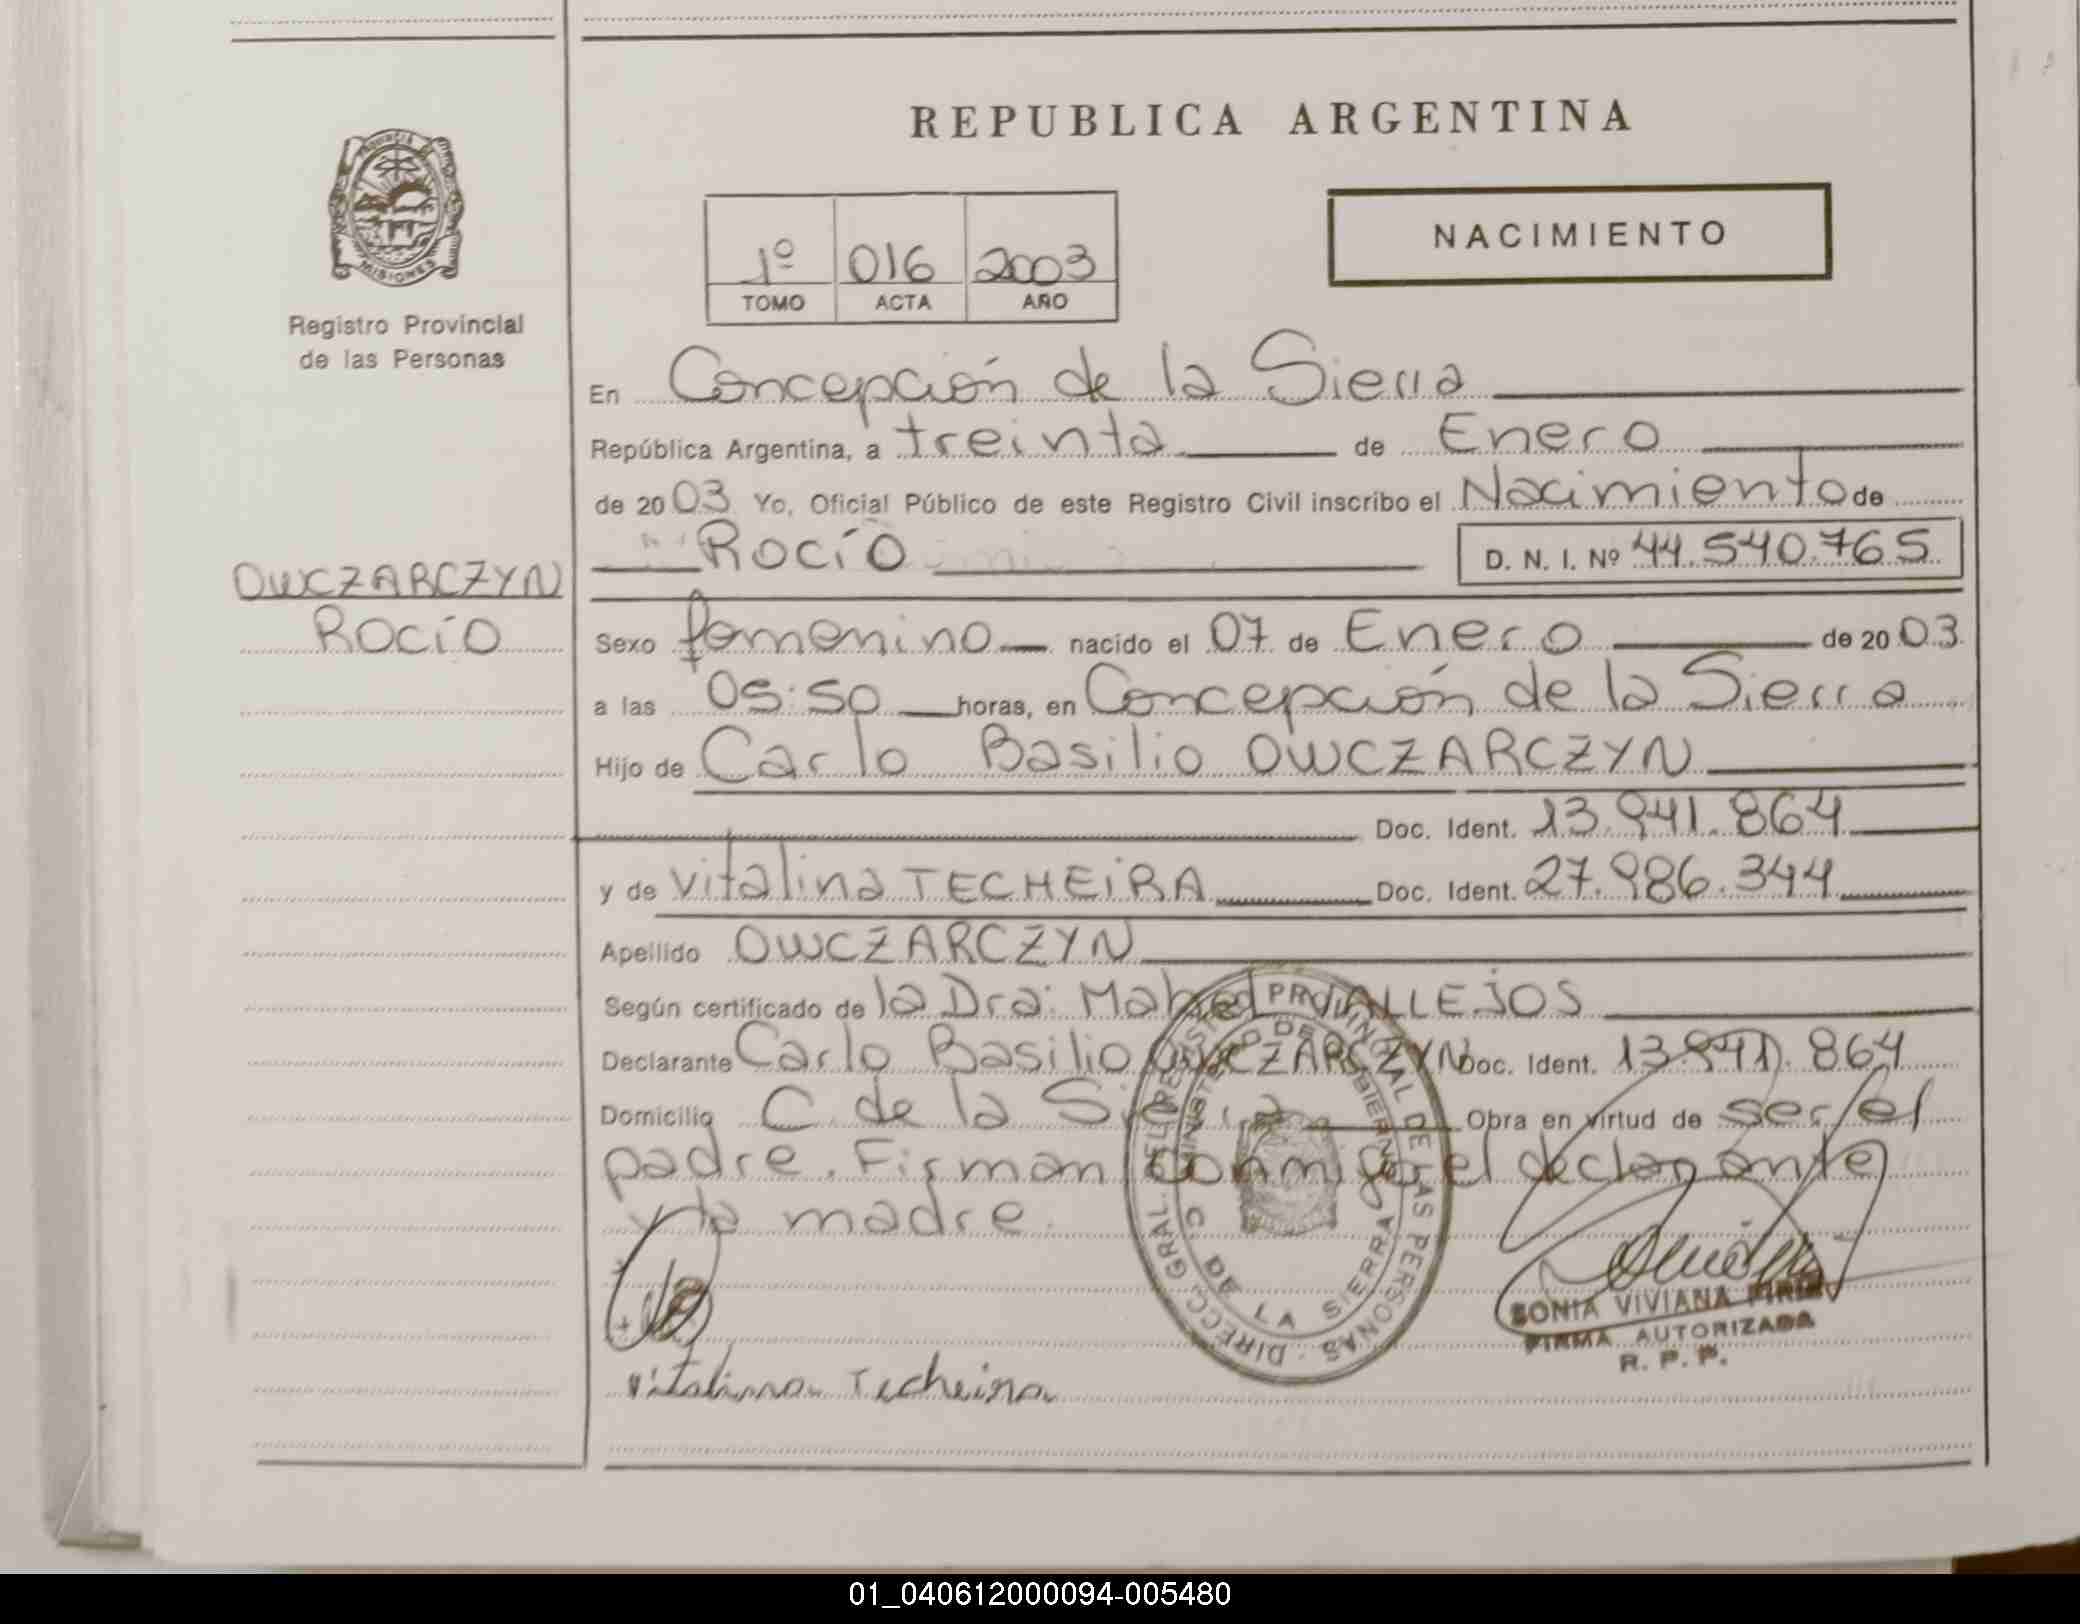 REPUBLICA ARGENTINA
PROVINCIA DE
MISIONES
Registro Provincial
de las Personas
NACIMIENTO
1º 016 2003
TOMO ACTA AÑO
En Concepción de la Sierra
República Argentina, a treinta de Enero
de 2003 Yo, Oficial Público de este Registro Civil inscribo el Nacimiento de
Rocío D. N. I. Nº 44.540.765
OWCZARCZYN
ROCÍO
Sexo femenino nacido el 07 de Enero de 2003
a las 05:50 horas, en Concepción de la Sierra
Hijo de Carlo Basilio OWCZARCZYN
Doc. Ident. 13.941.864
y de Vitalina TECHEIRA Doc. Ident. 27.986.344
Apellido OWCZARCZYN
Según certificado de la Dra: Mabel VALLEJOS
Declarante Carlo Basilio OWCZARCZYN Doc. Ident. 13.941.864
Domicilio C. de la Sierra Obra en virtud de ser el
padre. Firman conmigo el declarante
y la madre.
DIRECC. GRAL. DEL REGISTRO PROVINCIAL DE LAS PERSONAS
MINISTERIO DE GOBIERNO
C. DE LA SIERRA
Vitalina Techeira
SONIA VIVIANA
FIRMA AUTORIZADA
R. P. P.
01_040612000094-005480